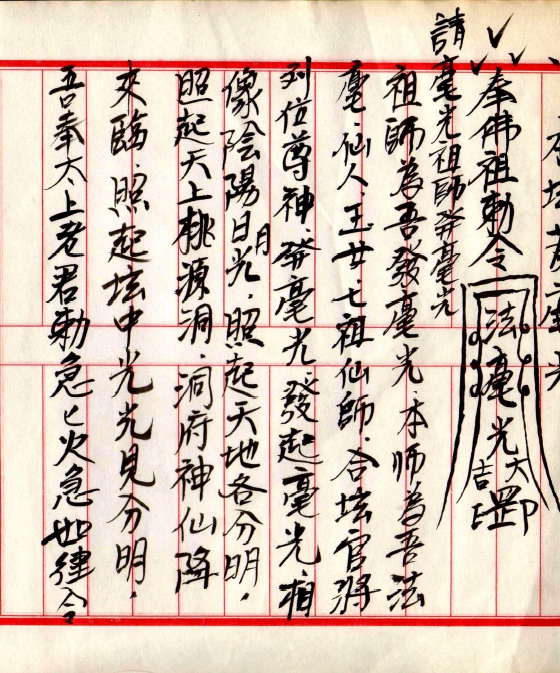 奉佛祖勅令 法毫光 大吉 罡印
請毫光祖師發毫光
祖師為吾發毫光.本師為吾法
毫.仙人.玉女七祖仙師.合坛官將
列位尊神.發毫光.發起毫光.相
像陰陽日月光.照起天地各分明,
照起天上桃源洞.洞府神仙降
來臨.照起坛中光光見分明,
吾奉太上老君勅急匕火急如律令